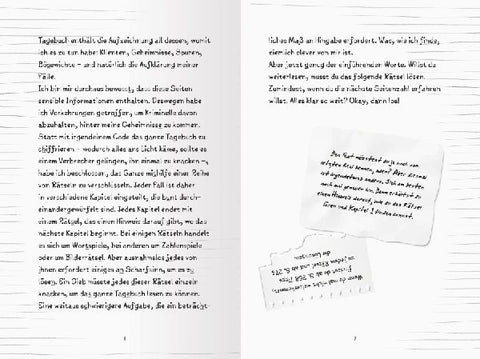 Tagebuch enthält die Aufzeichnung all dessen, womit
ich es zu tun habe: Klienten, Geheimnisse, Spuren,
Bösewichte – und natürlich die Aufklärung meiner
Fälle.
Ich bin mir durchaus bewusst, dass diese Seiten
sensible Informationen enthalten. Deswegen habe
ich Vorkehrungen getroffen, um Kriminelle davon
abzuhalten, hinter meine Geheimnisse zu kommen.
Statt mit irgendeinem Code das ganze Tagebuch zu
chiffrieren – wodurch alles ans Licht käme, sollte es
einem Verbrecher gelingen, ihn einmal zu knacken –,
habe ich beschlossen, das Ganze mithilfe einer Reihe
von Rätseln zu verschlüsseln. Jeder Fall ist daher
in verschiedene Kapitel eingeteilt, die bunt durch-
einandergewürfelt sind. Jedes Kapitel endet mit
einem Rätsel, das einen Hinweis darauf gibt, wo das
nächste Kapitel beginnt. Bei einigen Rätseln handelt
es sich um Wortspiele, bei anderen um Zahlenspiele
oder um Bilderrätsel. Aber ausnahmslos jedes von
ihnen erfordert einiges an Scharfsinn, um es zu
lösen. Ein Dieb müsste jedes dieser Rätsel einzeln
knacken, um das ganze Tagebuch lesen zu können.
Eine weitaus schwierigere Aufgabe, die ein beträcht-
liches Maß an Hingabe erfordert. Was, wie ich finde,
ziemlich clever von mir ist.
Aber jetzt genug der einführenden Worte. Willst du
weiterlesen, musst du das folgende Rätsel lösen.
Zumindest, wenn du die nächste Seitenzahl erfahren
willst. Alles klar so weit? Okay, dann los!
Wenn du mal nicht weiterkommst,
findest du ab S. 268 Tipps
zu jedem Rätsel und ab S. 272
die Lösungen.
7